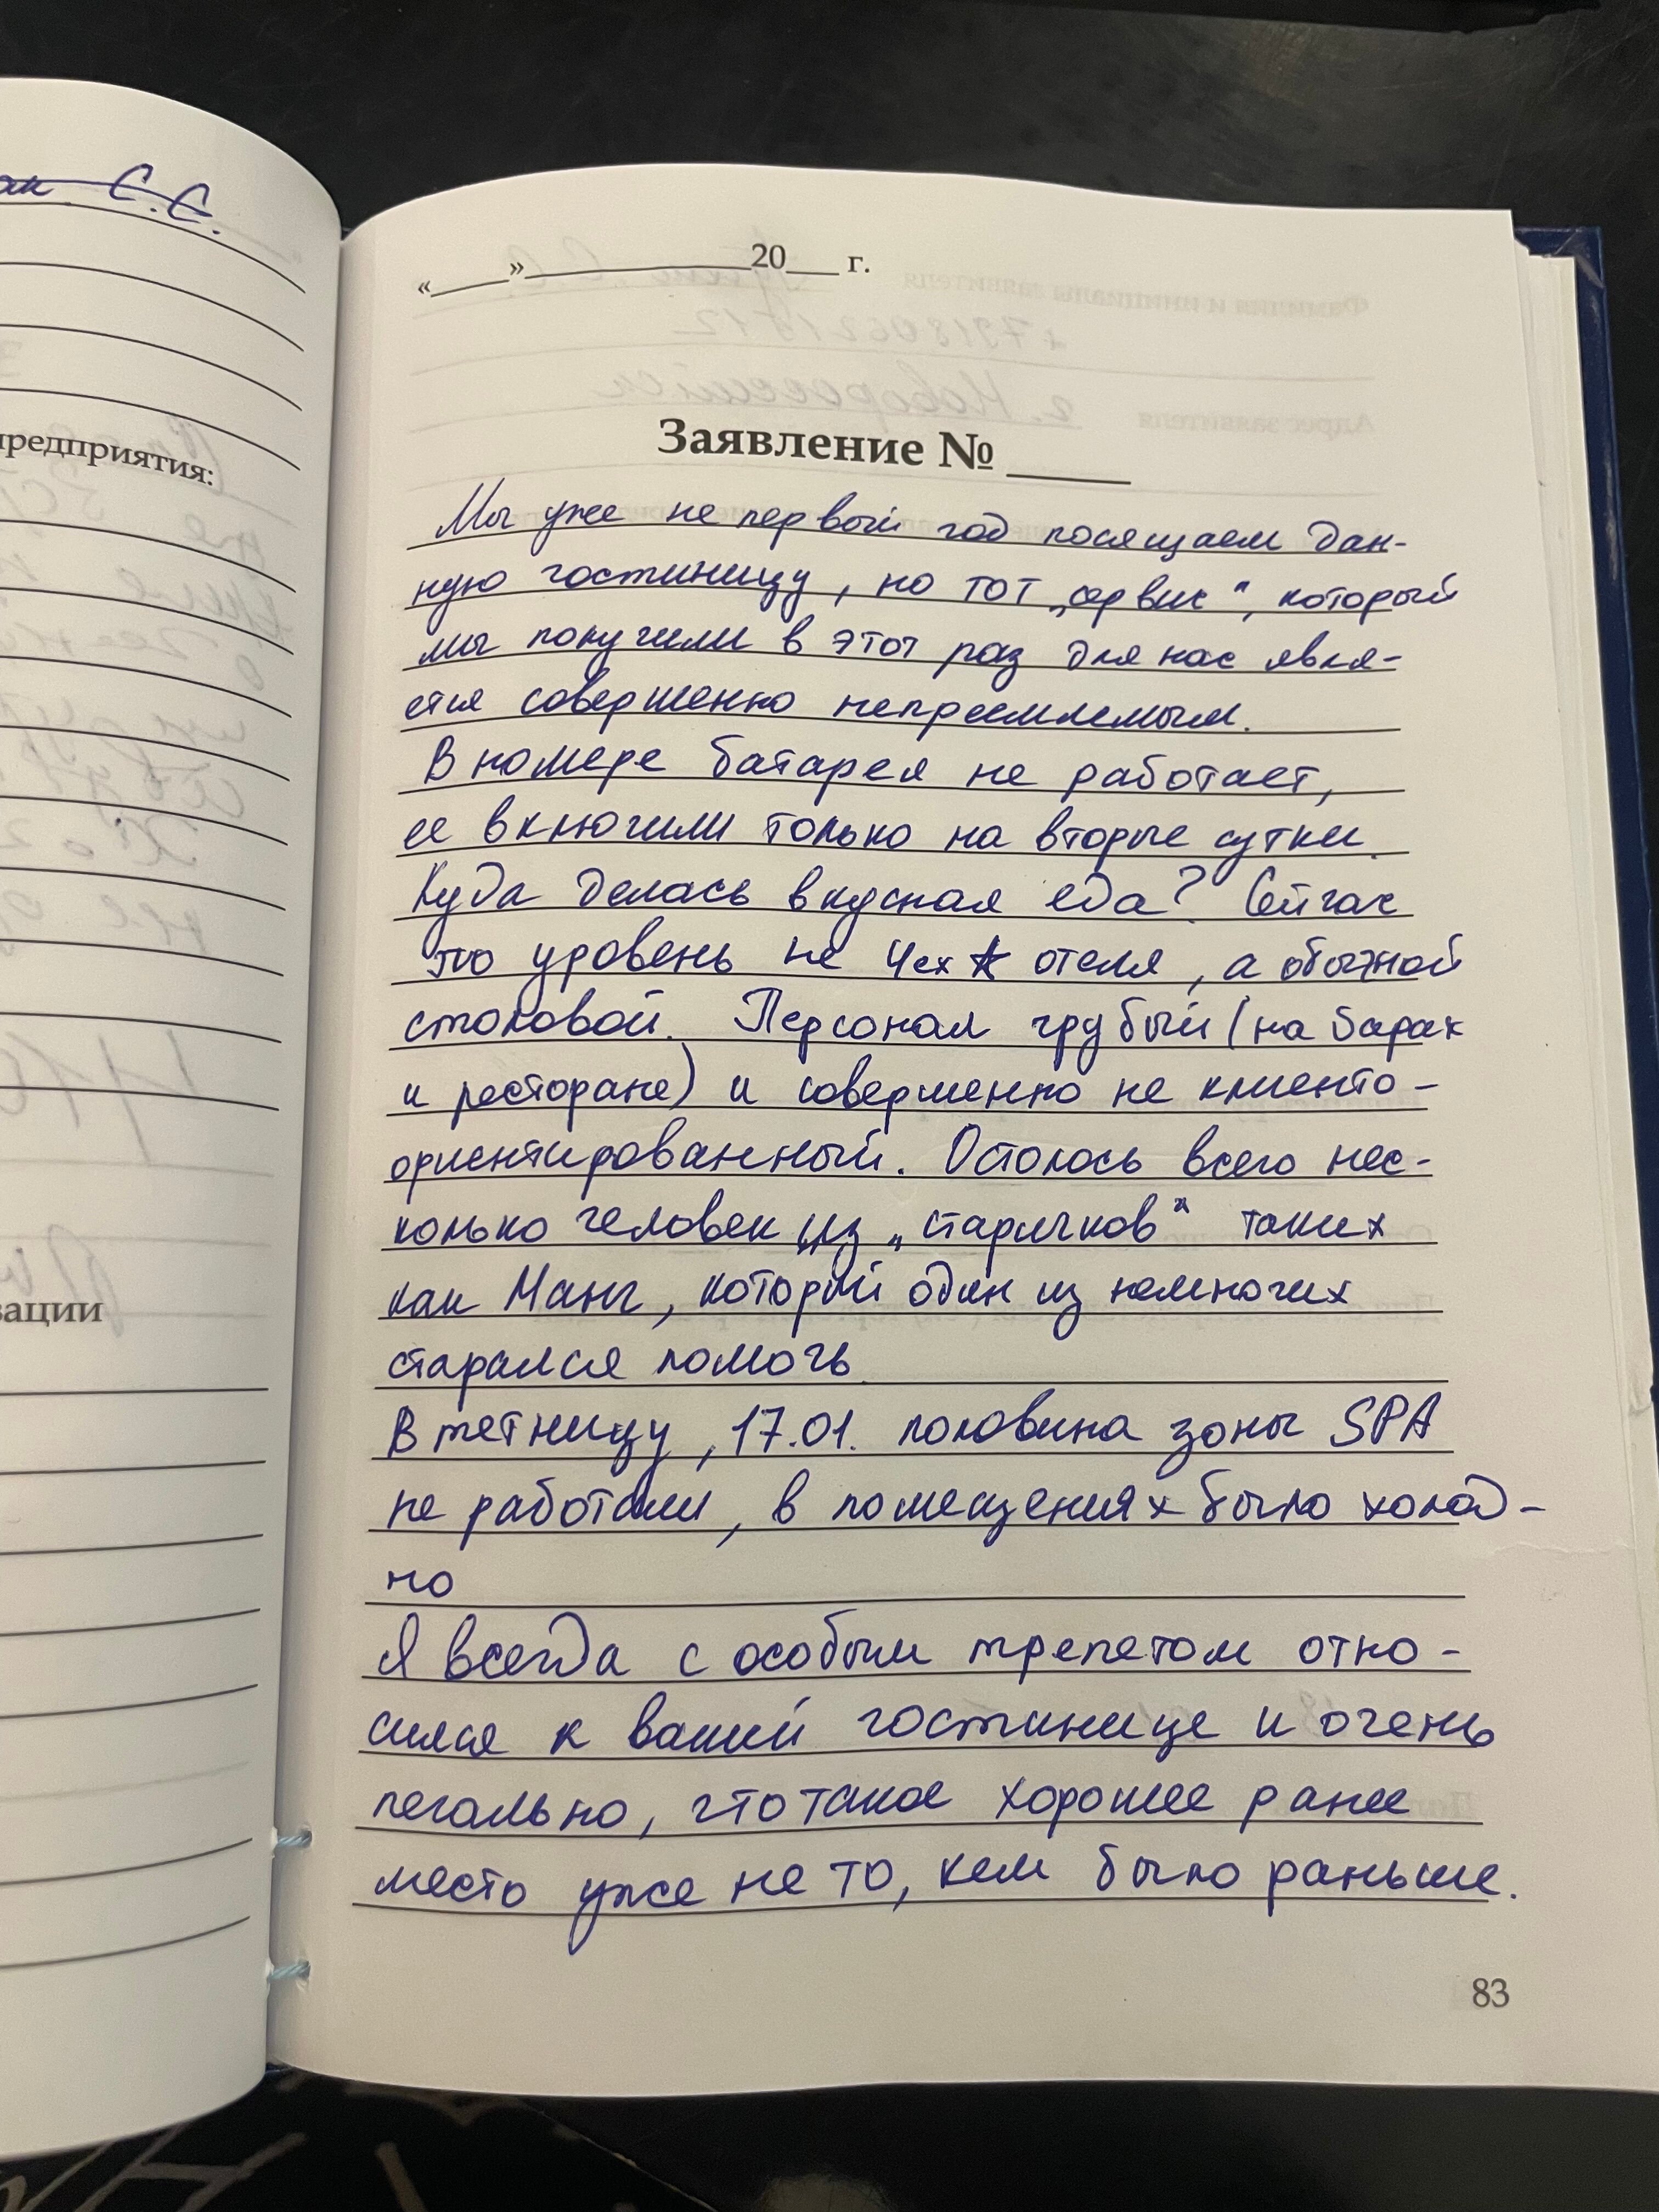 С.С.
предприятия:
зации
«____»____________20___ г.
Заявление № ____
Мы уже не первый год посящаем дан-
ную гостиницу, но тот „сервис“, который
мы получили в этот раз для нас явля-
ется совершенно неприемлемым.
В номере батарея не работает,
ее включили только на вторые сутки.
Куда делась вкусная еда? Сейчас
это уровень не 4ех ★ отеля, а обычной
столовой. Персонал грубый (на барах
и ресторане) и совершенно не клиенто-
ориентированный. Осталось всего нес-
колько человек из „старичков“ таких
как, который один из немногих
старался помочь
В пятницу, 17.01. половина зоны SPA
не работали, в помещениях было холод-
но
Я всегда с особым трепетом отно-
сился к вашей гостинице и очень
печально, что такое хорошее ранее
место уже не то, кем было раньше.
83